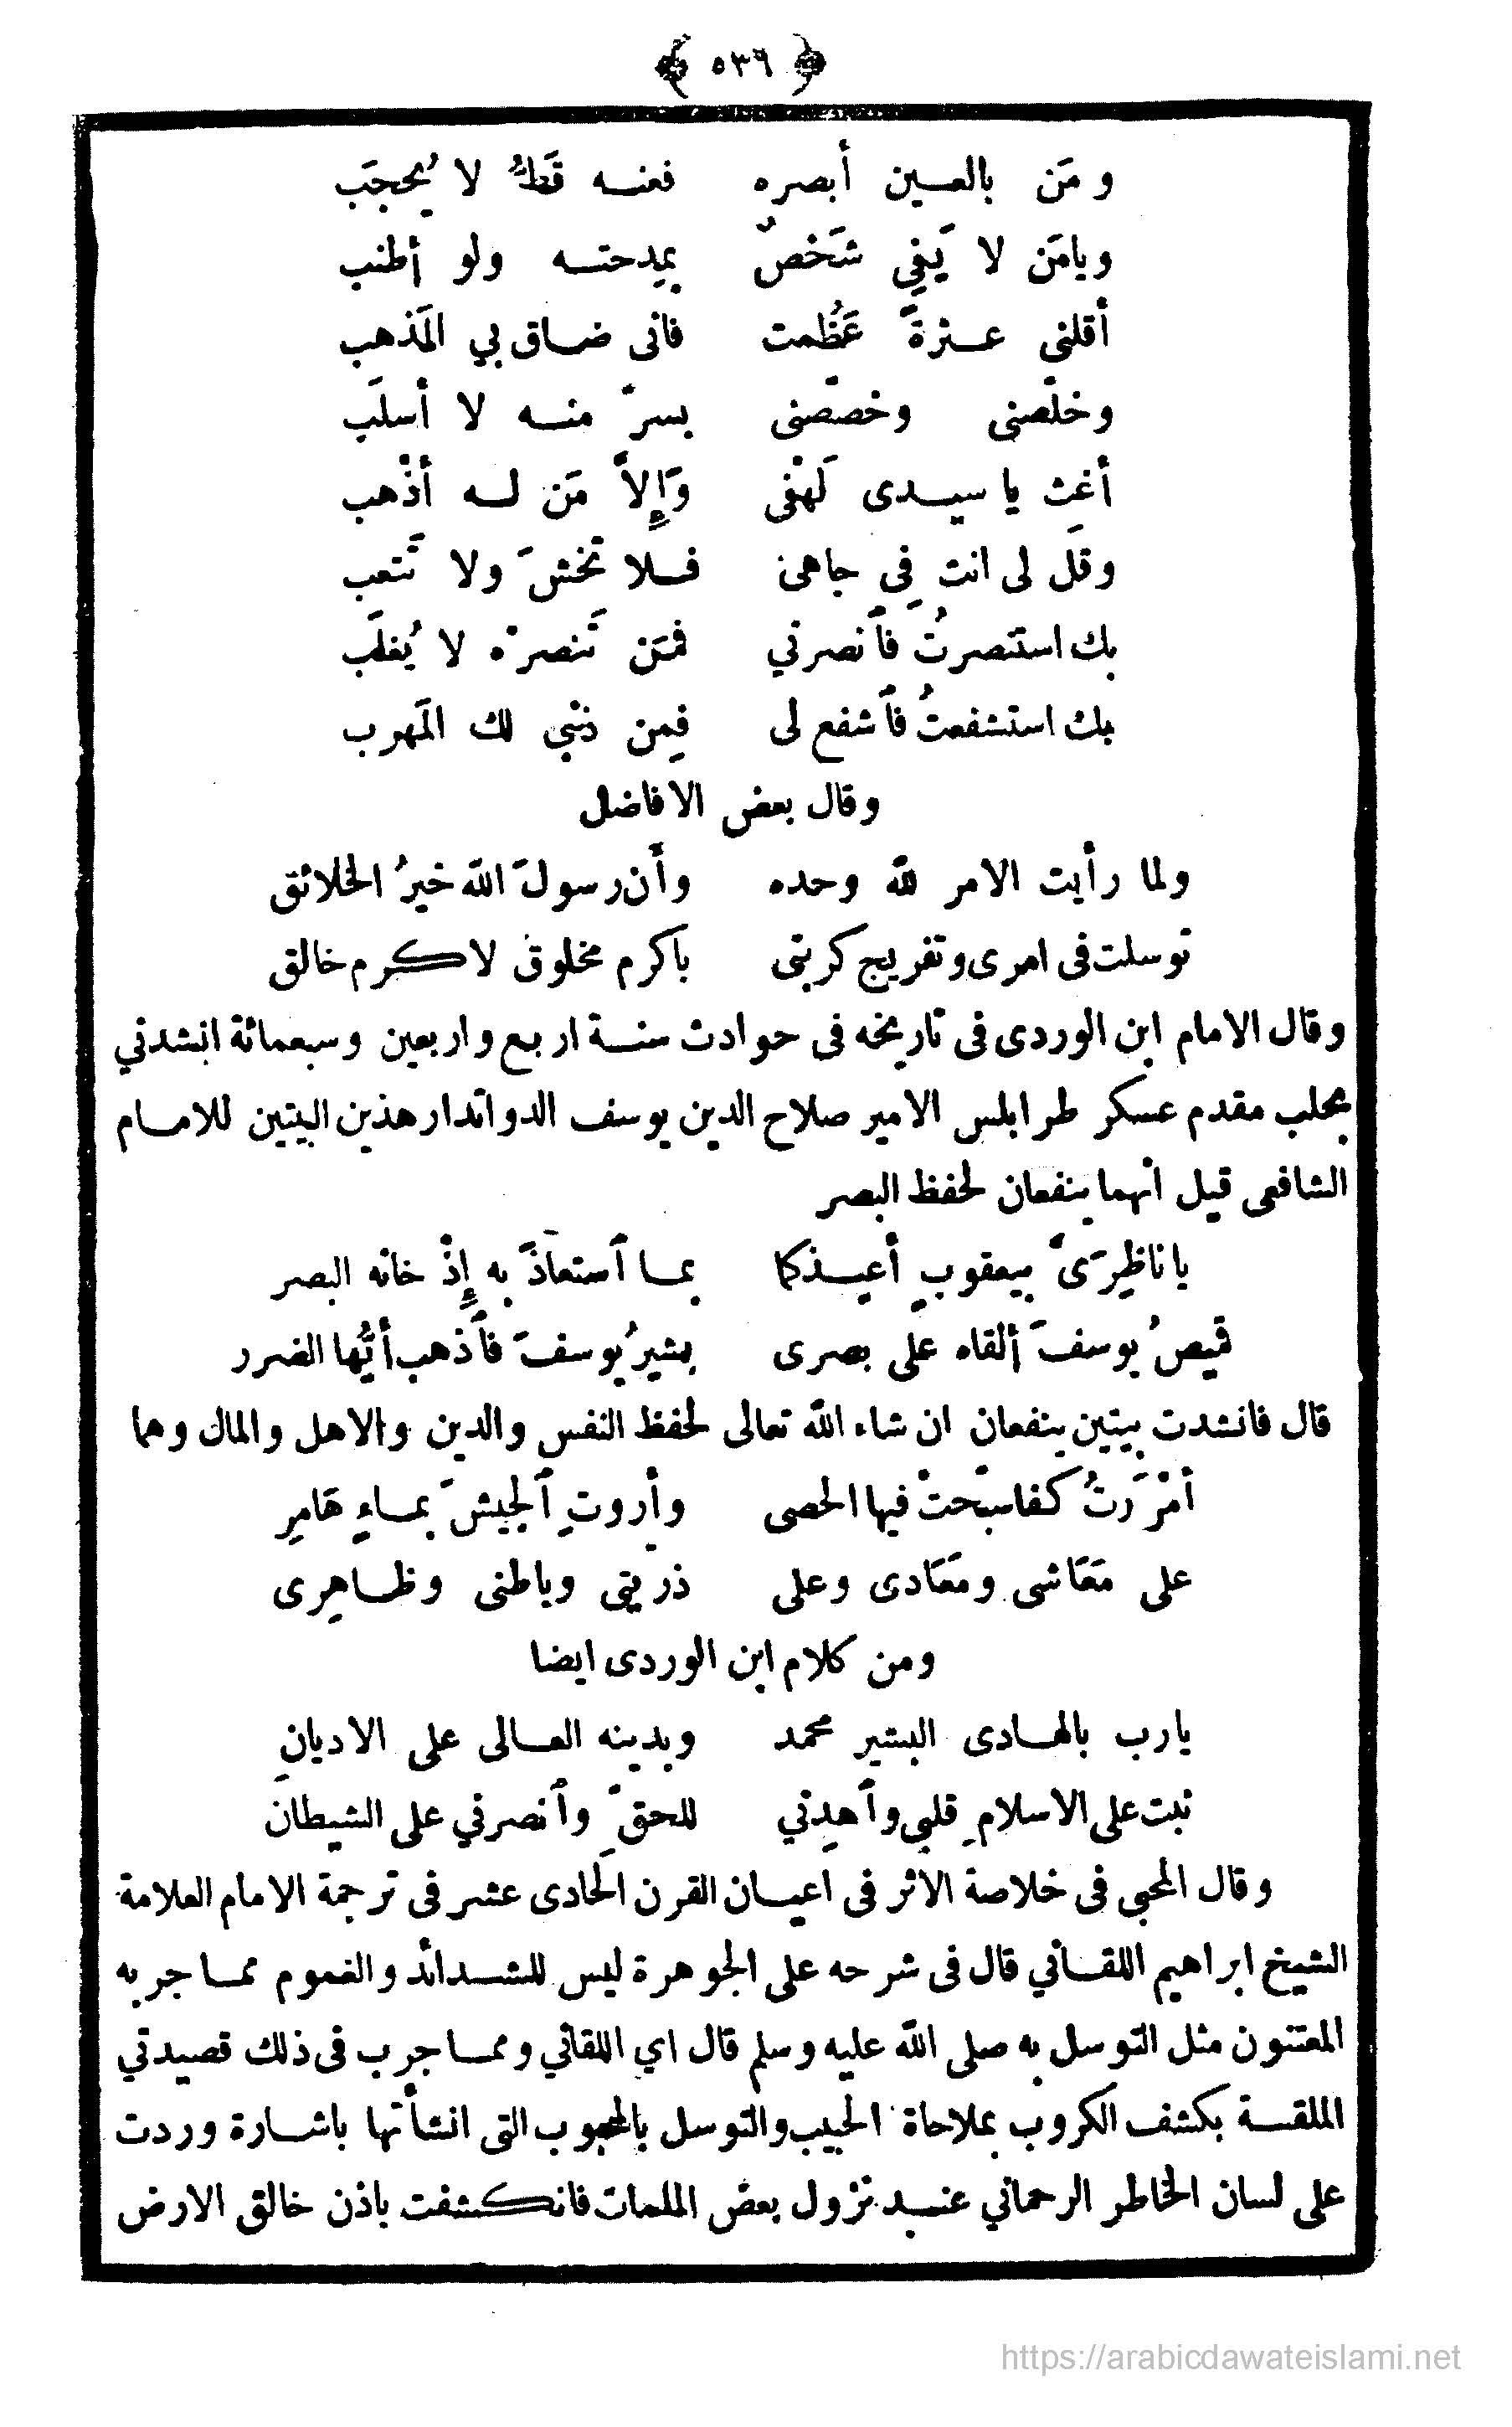 ﴿ ٥٣٦ ﴾
ومَن بالعين أبصره فعنه قَطُّ لا يُحجَب
ويامَن لا يَفِي شَخْصٌ بمِدحته ولو أطنب
أقلني عثرةً عَظُمت فانى ضاق بي المَذهب
وخلّصنى وخصّصنى بسرّ منه لا أسلَب
أغث يا سيدى لَهْفى وَإِلاَّ مَن له أذْهب
وقل لى انت فِي جاهى فلا تَخشَ ولا تَتعب
بك استنصرتُ فٱنصرني فمَن تَنصرْه لا يُغلَب
بك استشفعتُ فٱشفع لى فمِن ذنْبي لك المَهرب
وقال بعض الافاضل
ولما رأيت الامر لله وحده وأن رسولَ الله خيرُ الخلائق
توسلت فى امرى وتفريج كربتى باكرم مخلوق لاكرم خالق
وقال الامام ابن الوردى فى تاريخه فى حوادث سنة اربع واربعين وسبعمائة انشدني
بحلب مقدم عسكر طرابلس الامير صلاح الدين يوسف الدواتدار هذين البيتين للامام
الشافعى قيل انهما ينفعان لحفظ البصر
يا ناظِرَىَّ بيعقوبٍ أعيذكما بما ٱستعاذَ به إِذْ خانه البصر
قميصُ يوسفَ ألقاه على بصرى بشيرُ يوسفَ فٱذهب أيُّها الضرر
قال فانشدت بيتين ينفعان ان شاء الله تعالى لحفظ النفس والدين والاهل والمال وهما
أمْرَرتُ كفا سبّحتْ فيها الحصى وأروتِ ٱلجيشَ بماءٍ هَامِرِ
على مَعَاشى ومَعَادى وعلى ذريتى وباطنى وظاهِرى
ومن كلام ابن الوردى ايضا
يارب بالهادى البشير محمد وبدينه العالى على الاديانِ
ثبت على الاسلامِ قلبي وٱهدِني للحقِّ وٱنصرني على الشيطان
وقال المحبي فى خلاصة الاثر فى اعيان القرن الحادى عشر فى ترجمة الامام العلامة
الشيخ ابراهيم اللقاني قال فى شرحه على الجوهرة ليس للشدائد والغموم مما جربه
المعتنون مثل التوسل به صلى الله عليه وسلم قال اي اللقاني ومما جرب فى ذلك قصيدتي
الملقبة بكشف الكروب بملاحاة الحبيب والتوسل بالمحبوب التى انشأتها باشارة وردت
على لسان الخاطر الرحماني عند نزول بعض الملمات فانكشفت باذن خالق الارض
https://arabicdawateislami.net